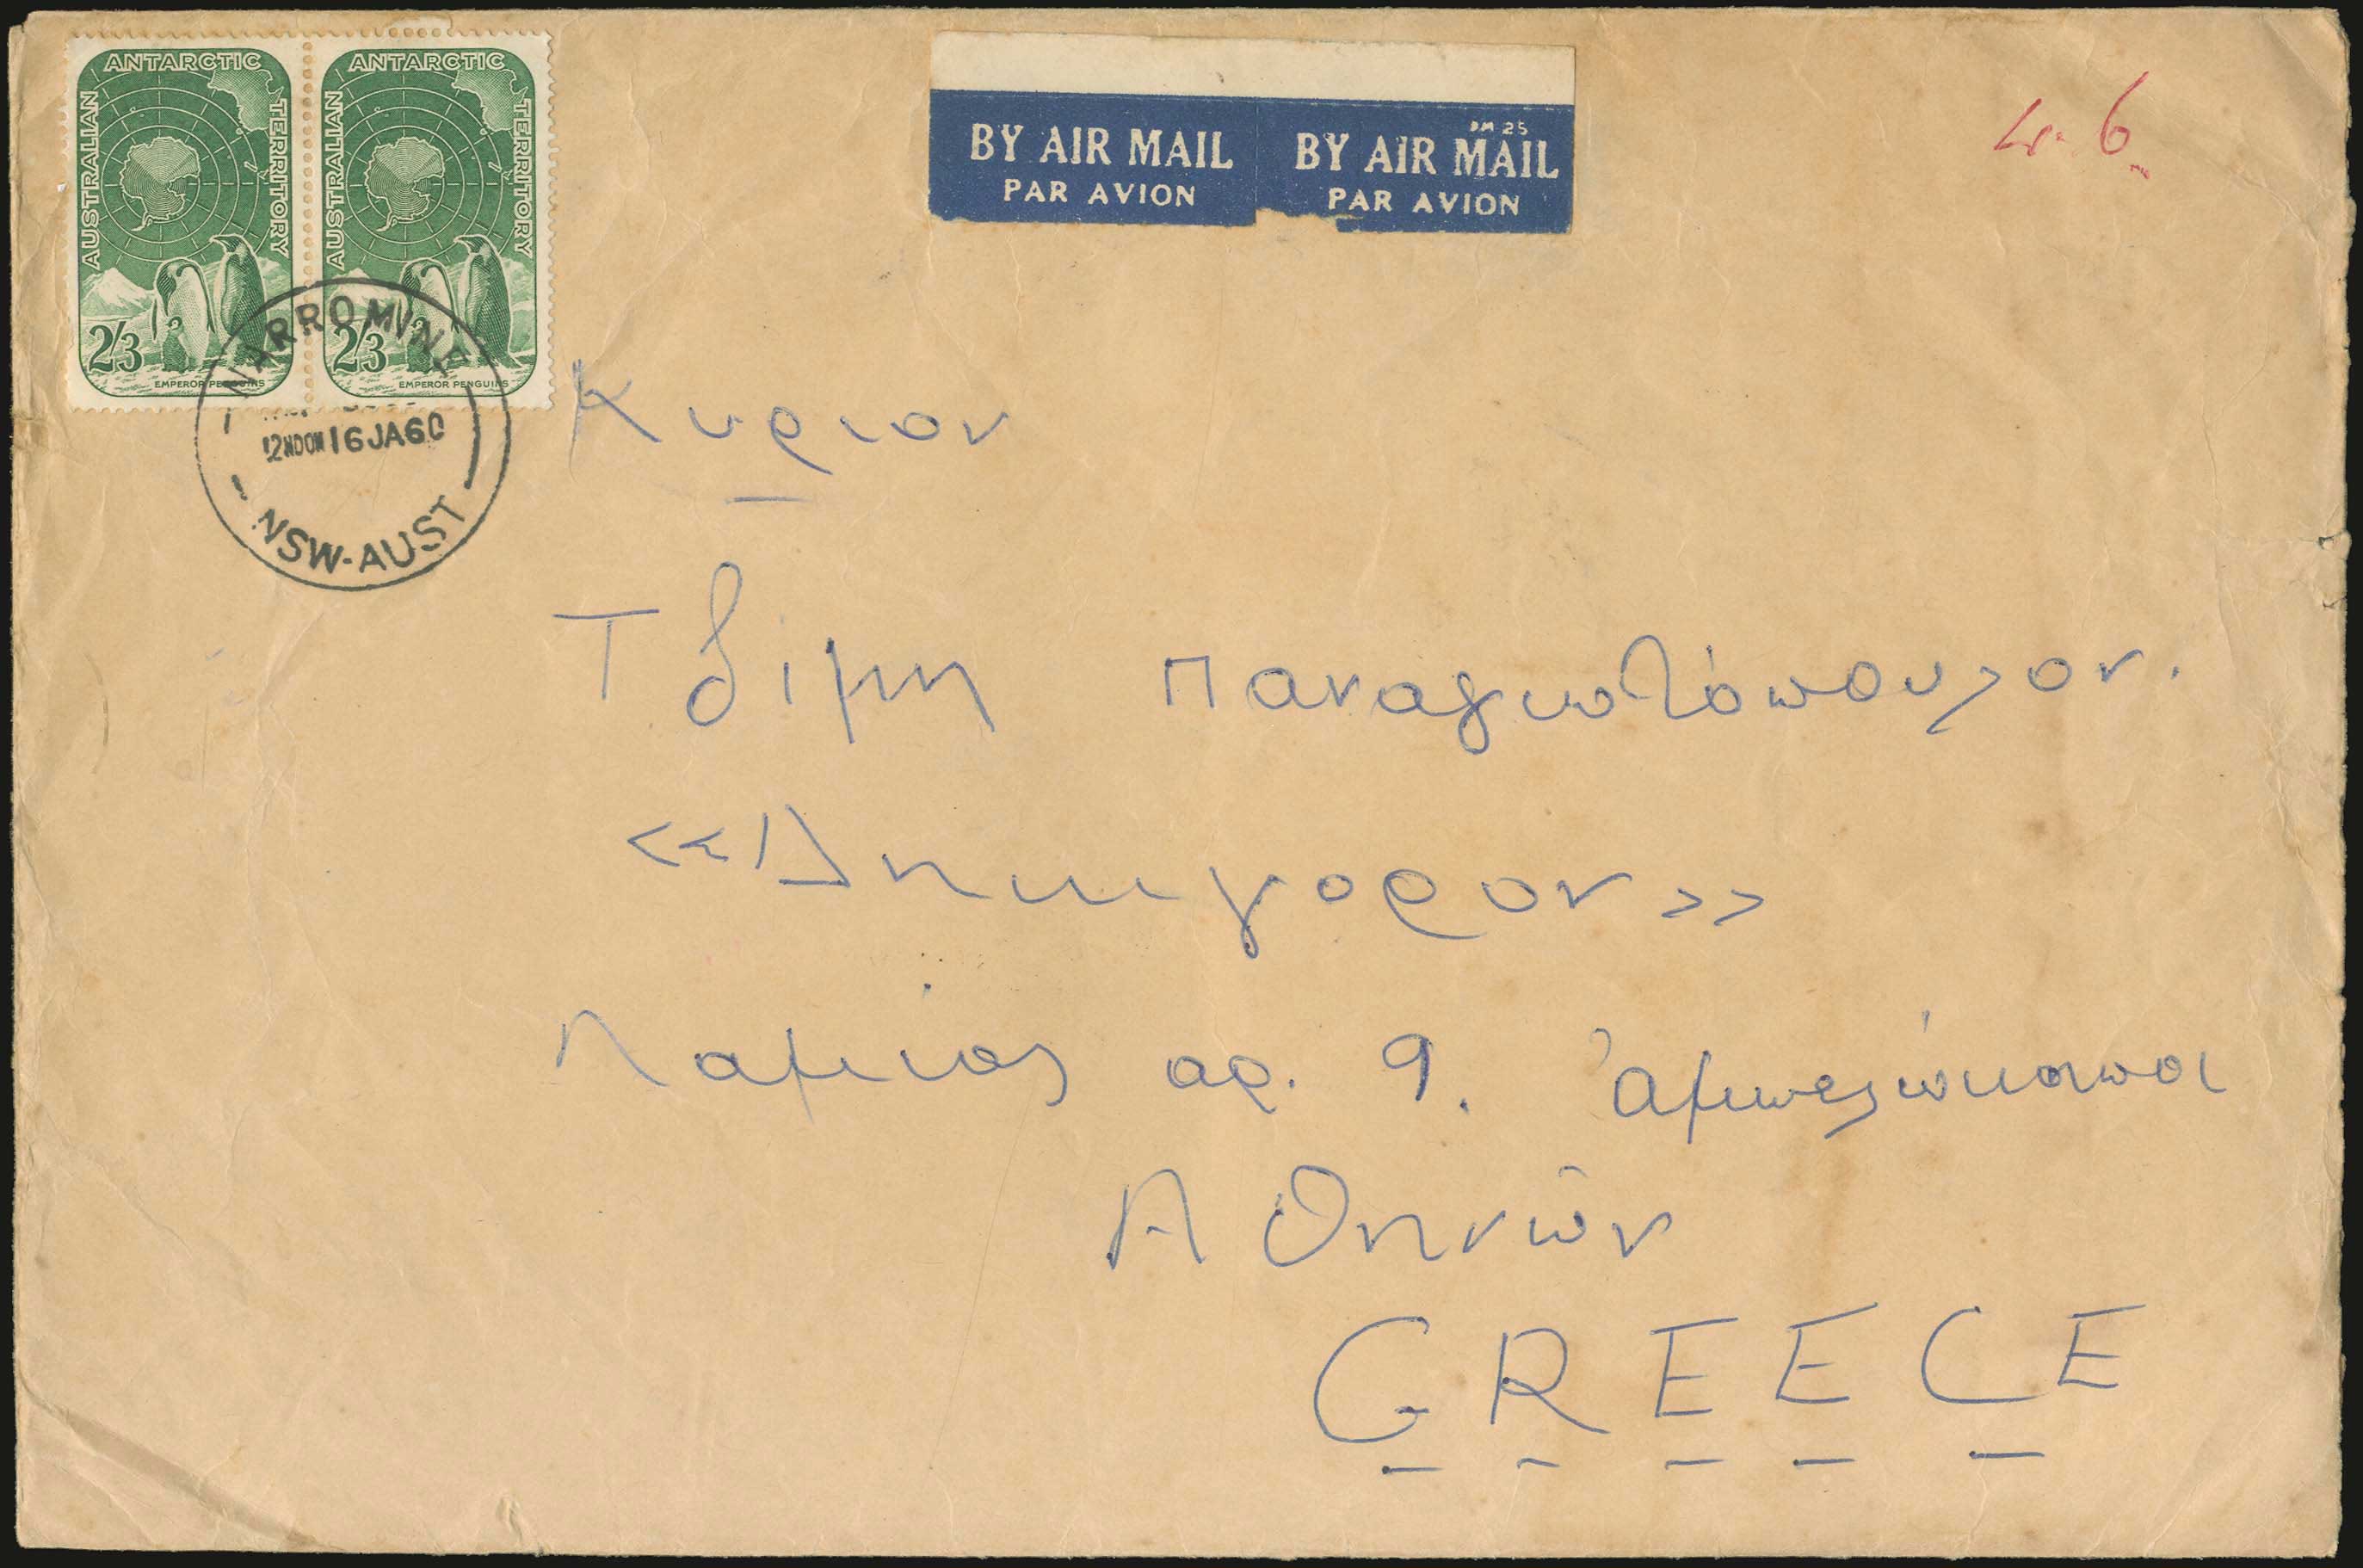 ANTARCTIC
AUSTRALIAN
TERRITORY
2/3
EMPEROR PENGUINS
ANTARCTIC
AUSTRALIAN
TERRITORY
2/3
EMPEROR PENGUINS
NARROMINE
12NOON 16JA60
NSW-AUST
BY AIR MAIL
PAR AVION
BM 25
BY AIR MAIL
PAR AVION
4. 6
Κυριον
Τζίμη Παναγιωτόπουλον.
««Δικηγορον»»
Λαμίας αρ. 9. Ἀμπελόκηποι
Αθηνῶν
GREECE